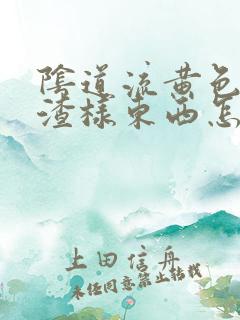 陰道流黄色
渣樣東西怎
上田信舟
未经同意禁止转载